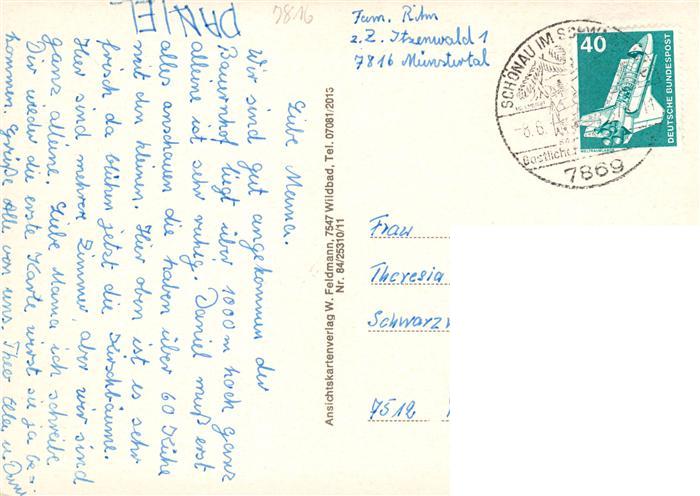 7816
DANIEL
Liebe Mama.
Wir sind gut angekommen der
Bauernhof liegt über 1000 m hoch ganz
alleine ist sehr ruhig. Daniel muß erst
alles anschauen die haben über 60 Kühe
mit den kleinen. Hier oben ist es sehr
frisch da blühen jetzt die Kirschbäume.
Hier sind mehrere Zimmer aber wir sind
ganz alleine. Liebe Mama ich schreibe
Dir wieder die erste Karte wirst sie ja be-
kommen. Grüße Alle von uns. Theo Elke u. Daniel
Ansichtskartenverlag W. Feldmann, 7547 Wildbad, Tel. 07081/2013
Nr. 84/25310/11
Fam. Rihm
z. Z. Itzenwald 1
7816 Münstertal
SCHÖNAU IM SCHW
-8.6.
7869
40
DEUTSCHE BUNDESPOST
Frau
Theresia
Schwarzw
7512